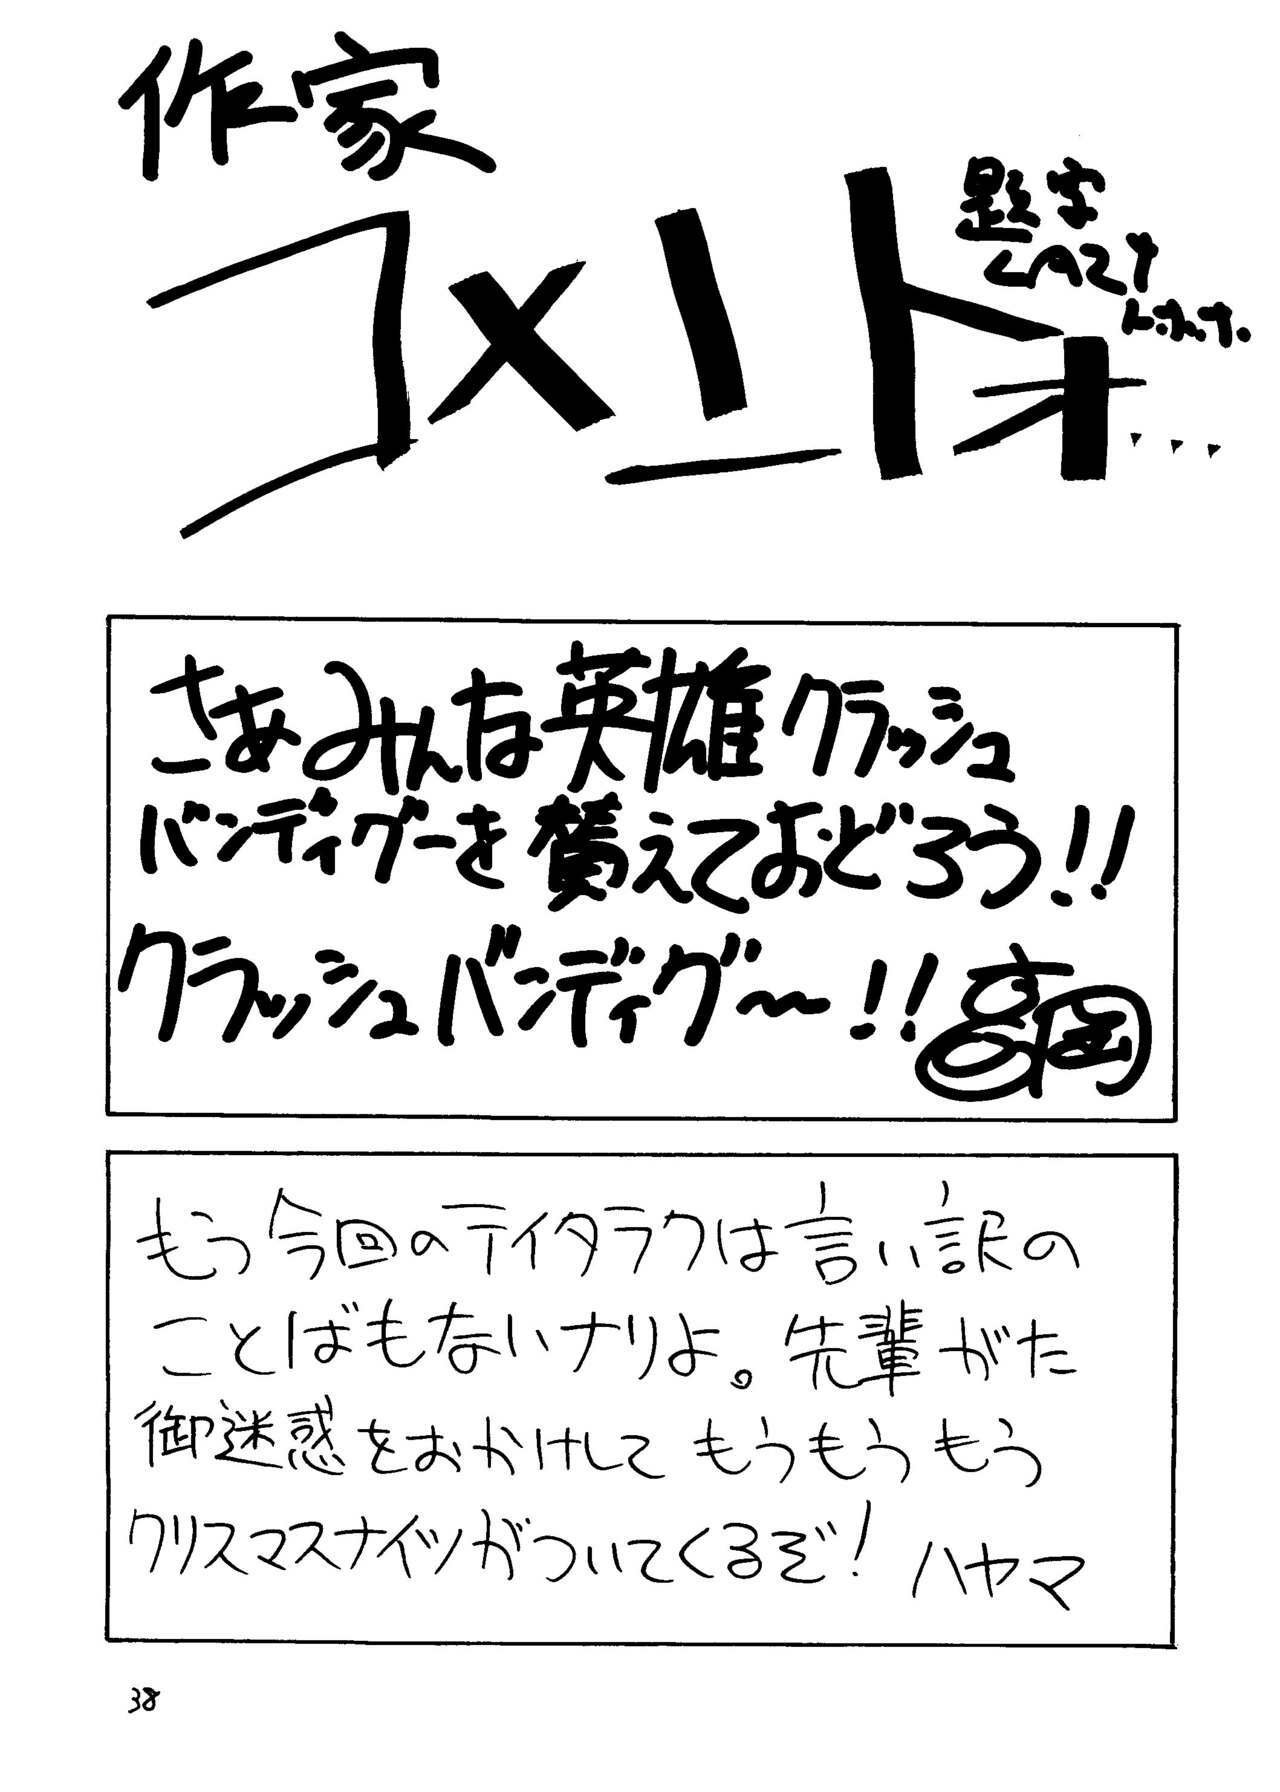 作家
コメント
題字
LAZY
さあみんな英雄クラッシュ
バンディグーを賛えておどろう!!
クラッシュバンディグ〜!!
もう今回のテイタラクは言い訳の
ことばもないナリよ。先輩がた
御迷惑をおかけして もうもうもう
クリスマスナイツがついてくるぞ! ハヤマ
38